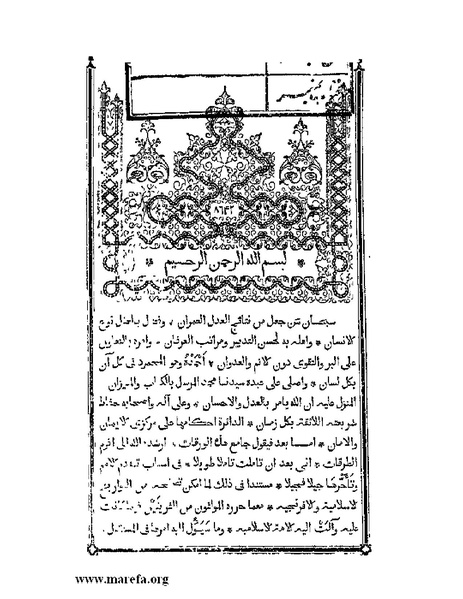 ٨٦٤٢
* بسم الله الرحمن الرحيم *
سبحان من جعل من نتائج العدل العمران * وفضل نوع
الانسان * واهله لحسن التدبير ومراتب العرفان * وامره بالتعاون
على البر والتقوى دون الاثم والعدوان * احمده وهو المحمود في كل آن
بكل لسان * واصلى على عبده سيدنا محمد المرسل بالكتاب والميزان
المنزل عليه ان الله يامر بالعدل والاحسان * وعلى آله واصحابه حفاظ
شريعته اللائقة بكل زمان * الدائرة احكامها على مركزى الايمان
والامان * امـــا بعد فيقول جامع هذه الورقات * ارشده الله الى اقوم
الطرقات * انى بعد ان تاملت تاملا طويلا * فى اسباب تقدم الامم
وتأخرها جيلا فجيلا * مستندا فى ذلك لما امكن تصفحه من التواريخ
الاسلامية والافرنجيه * مما حرره المؤلفون من الفريقين فيما كانت
عليه وآلت اليه الامة الاسلاميه * وما سيئول اليه امرها فى المستقبل
www.marefa.org